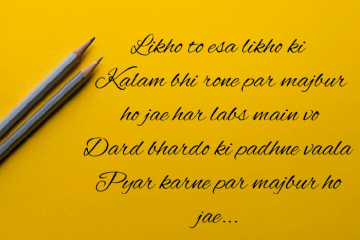 Likho to esa likho ki
Kalam bhi rone par majbur
ho jae har labs main vo
Dard bhardo ki padhne vaala
Pyar karne par majbur ho
jae...